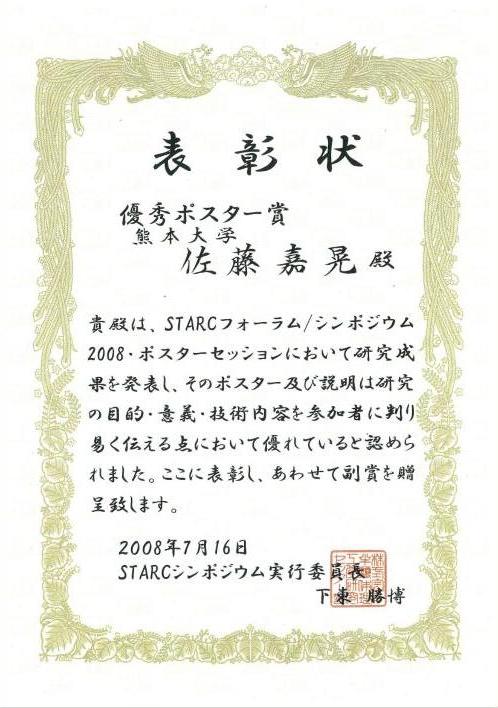 表彰状
優秀ポスター賞
熊本大学
佐藤嘉晃殿
貴殿は、STARCフォーラム/シンポジウム
2008・ポスターセッションにおいて研究成
果を発表し、そのポスター及び説明は研究
の目的・意義・技術内容を参加者に判り
易く伝える点において優れていると認めら
れました。ここに表彰し、あわせて副賞を贈
呈致します。
2008年7月16日
STARCシンポジウム実行委員長
下東 勝博